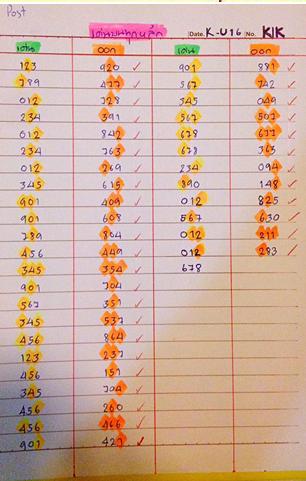 Post
เด่นบนทุกหลัก Date. K-U16 No. KIK
เด่น ออก เด่น ออก
123 920 ✓ 901 881 ✓
789 477 ✓ 567 742 ✓
012 328 ✓ 345 049 ✓
234 391 ✓ 567 507 ✓
012 842 ✓ 678 677 ✓
234 763 ✓ 678 365 ✓
012 269 ✓ 234 094 ✓
345 615 ✓ 890 148 ✓
901 409 ✓ 012 825 ✓
901 608 ✓ 567 630 ✓
789 804 ✓ 012 211 ✓
456 449 ✓ 012 283 ✓
345 354 ✓ 678
901 704 ✓
567 357 ✓
345 537 ✓
456 864 ✓
123 237 ✓
456 157 ✓
345 704 ✓
456 260 ✓
456 466 ✓
901 427 ✓